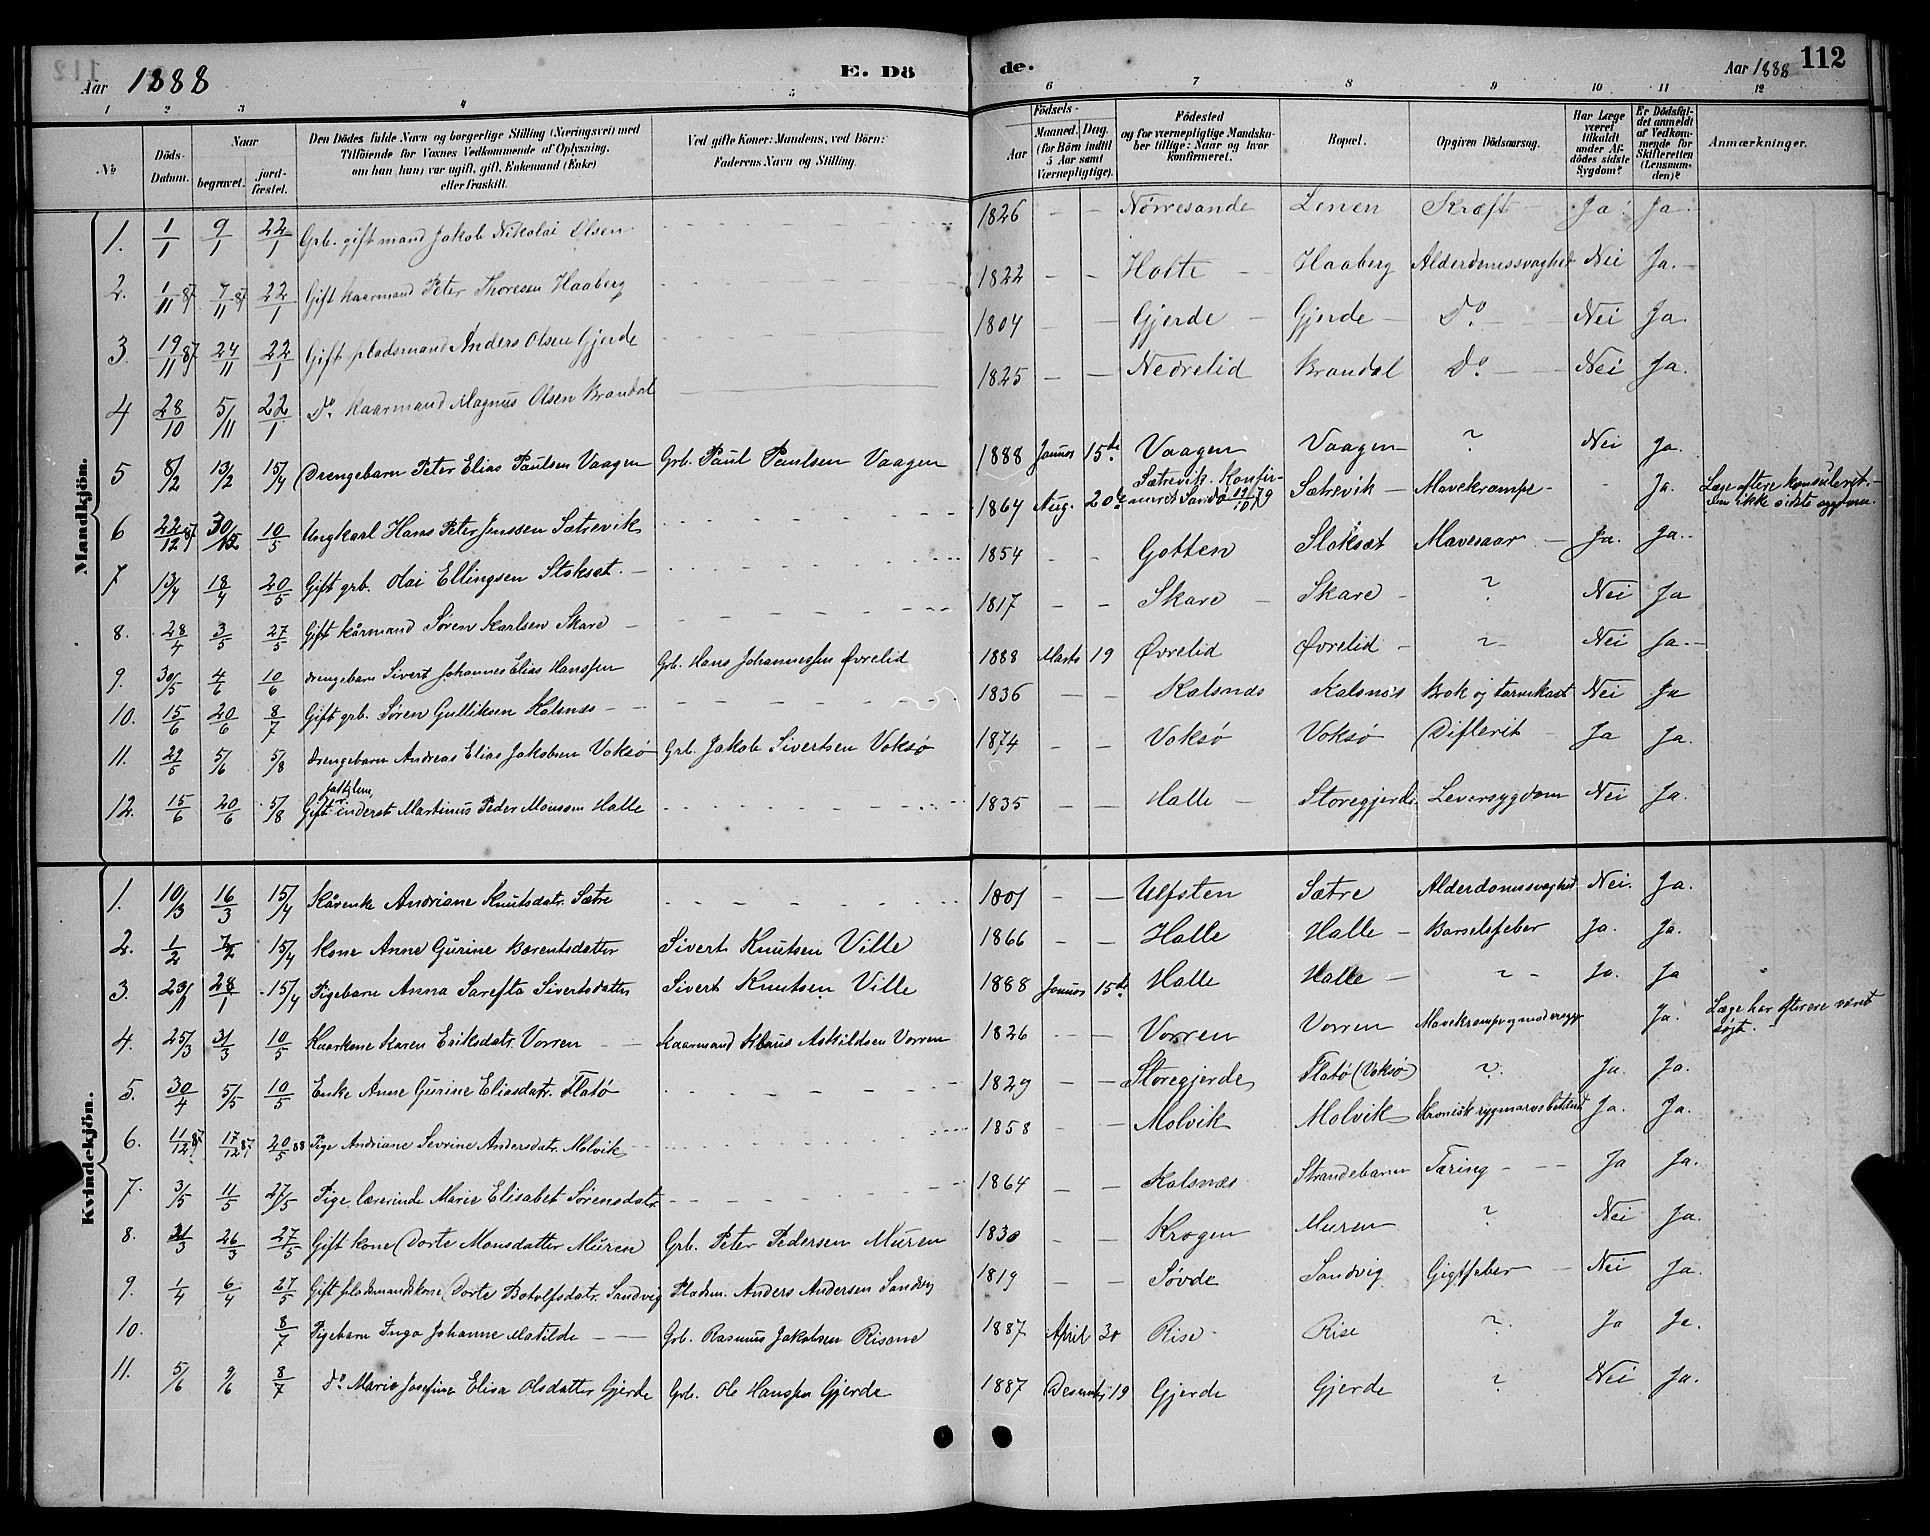 112
Aar 1888
E. Dö
de.
Aar 1888
1 2 3 4 5 6 7 8 9 10 11 12
No
Döds-Datum.
Naar
begravet.
jord-fæstet.
Den Dödes fulde Navn og borgerlige Stilling (Næringsvei) med
Tilföiende for Voxnes Vedkommende af Oplysning,
om han (hun) var ugift, gift, Enkemand (Enke)
eller fraskilt.
Ved gifte Koner: Mandens, ved Börn:
Faderens Navn og Stilling.
Födsels-
Aar
Maaned. Dag.
(for Börn indtil
5 Aar samt
Værnepligtige).
Födested
og for værnepligtige Mandska-
ber tillige: Naar og hvor
konfirmeret.
Bopæl.
Opgiven Dödsaarsag.
Har Læge
været
tilkaldt
under Af-
dödes sidste
Sygdom?
Er Dödsfal-
det anmeldt
af Vedkom-
mende for
Skifteretten
(Lensman-
den)?
Anmærkninger.
Mandkjön.
1. 1/1 9/1 22/1 Grb. gift mand Jakob Nikolai Olsen 1826 – – Nörresande Lenen Kræft Ja. Ja.
2. 1/11 87 7/11 87 22/1 Gift kaarmand Peter Thoresen Haaberg 1822 – – Holte Haaberg Alderdomssvaghed Nei Ja.
3. 19/11 87 24/11 22/1 Gift pladsmand Anders Olsen Gjerde 1804 – – Gjerde Gjerde Do. Nei Ja.
4 28/10 5/11 22/1 Do. Kaarmand Magnus Olsen Brandal 1825 – – Nedrelid Brandal Do. Nei Ja.
5 8/2 13/2 15/4 Drengebarn Peter Elias Paulsen Vaagen Grb. Paul Paulsen Vaagen 1888 Januar 15de Vaagen Vaagen ? Nei Ja.
6 22/12 87 30/12 10/5 Ungkarl Hans Peter Jenssen Sætrevik 1864 Aug. 20de Sætrevik. Konfir-
meret Sandö 19/10 79 Sætrevik Mavekrampe – Ja. Læge oftere konsuleret
men ikke sidste
7 13/4 18/4 20/5 Gift grb. Olai Ellingsen Stoksæt. 1854 – – Gotten Stoksæt Mavesaar Ja. Ja.
8. 28/4 3/5 27/5 Gift kårmand Sören Karlsen Skare 1817 – – Skare Skare ? Nei Ja
9. 30/5 4/6 10/6 Drengebarn Sivert Johannes Elias Hanssen Grb. Hans Johannessen Øvrelid 1888 Marts 19 Øvrelid Øvrelid ? Nei Ja.
10. 15/6 20/6 8/7 Gift grb. Søren Gulliksen Kalsnæs 1836 – – Kalsnæs Kalsnæs Brok og tarmkast Nei Ja
11. 29/5 5/6 5/8 Drengebarn Andreas Elias Jakobsen Voksø Grb. Jakob Sivertsen Voksø 1874 – – Voksø Voksø Difterit Ja Ja.
12. 15/6 20/6 5/8 Gift inderst Martinus Peder Monsson Halle 1835 – – Halle Storegjerde Leversygdom Nei Ja.
Kvindekjön.
1. 10/3 16/3 15/4 Kårenke Andriane Knutsdatr. Sætre 1801 – – Ulfsten Sætre Alderdomssvaghed Nei. Ja.
2. 1/2 7/2 15/4 Kone Anne Gurine Barentsdatter Sivert Knutsen Ville 1866 – – Halle Halle Barselsfeber Ja. Ja.
3. 23/1 28/1 15/4 Pigebarn Anna Sarefta Sivertsdatter Sivert Knutsen Ville 1888 Januar 15de Halle Halle ? Ja. Ja
4. 25/3 31/3 10/5 Kaarkone Karen Eriksdatr. Vorren Kaarmand Klaus Askildsen Vorren 1826 – – Vorren Vorren Mavekrampe og Ja. Læge har oftere været
søgt.
5. 30/4 5/5 10/5 Enke Anne Gurine Eliasdatr. Flatø 1829 – – Storegjerde Flatø (Voksø) ? Ja. Ja.
6. 11/12 87 17/12 87 20/5 88 Pige Andriane Sevrine Andersdatr. Molvik 1858 – – Molvik Molvik Kronisk rygmarvsbetænd. Ja. Ja.
7. 3/5 11/5 27/5 Pige, lærerinde Marie Elisabet Sørensdatr. 1864 – – Kalsnæs Strandebarm Tæring Ja Ja.
8. 21/3 26/3 27/5 Gift kone Dorte Monsdatter Muren Grb. Peter Pedersen Muren 1830 – – Krogen Muren ? Nei Ja.
9. 1/4 6/4 27/5 Gift pladsmandskone Dorte Botolfsdatr. Sandvig Pladsm. Anders Andersen Sandvig 1819 – – Søvde Sandvig Gigtfeber Nei Ja.
10. 8/7 Pigebarn Inga Johanne Matilde Grb. Rasmus Jakobsen Risane 1887 April 30 Rise Rise ? Ja Ja.
11. 5/6 9/6 8/7 Do. Marie Josefine Elisa Olsdatter Gjerde Grb. Ole Hanssen Gjerde 1887 Desember 19 Gjerde Gjerde ? Nei Ja.